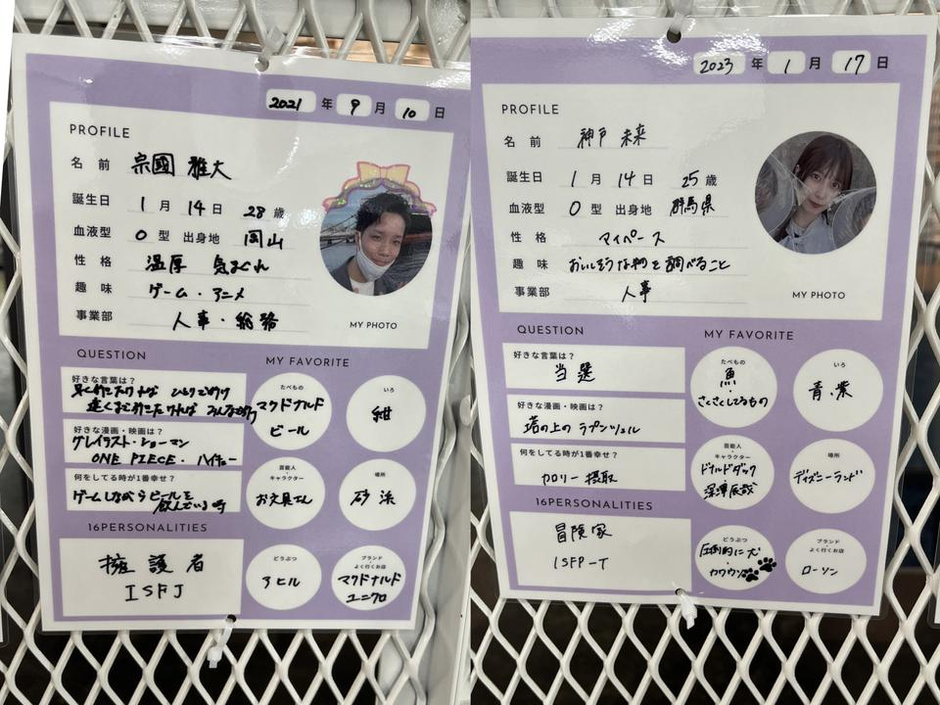 2021 年 9 月 10 日
PROFILE
名前 宗國 雅大
誕生日 1 月 14 日 28 歳
血液型 O 型 出身地 岡山
性格 温厚 気まぐれ
趣味 ゲーム・アニメ
事業部 人事・総務
MY PHOTO
QUESTION
好きな言葉は?
早く行こたければ ひとりで行け
遠くに行こたければ みんなで行け
好きな漫画・映画は?
グレイテスト・ショーマン
ONE PIECE・ハイキュー
何をしてる時が1番幸せ?
ゲームしながらビールを
飲んでいる時
16PERSONALITIES
擁護者
ISFJ
MY FAVORITE
たべもの
マクドナルド
ビール
いろ
紺
芸能人
・
キャラクター
お文具さん
場所
砂浜
どうぶつ
アヒル
ブランド
・
よく行くお店
マクドナルド
ユニクロ
2023 年 1 月 17 日
PROFILE
名前 神戸 未来
誕生日 1 月 14 日 25 歳
血液型 O 型 出身地 群馬県
性格 マイペース
趣味 おいしそうな物を調べること
事業部 人事
MY PHOTO
QUESTION
好きな言葉は?
当選
好きな漫画・映画は?
塔の上のラプンツェル
何をしてる時が1番幸せ?
カロリー摂取
16PERSONALITIES
冒険家
ISFP-T
MY FAVORITE
たべもの
魚
・
さくさくしてるもの
いろ
青・紫
芸能人
・
キャラクター
ドナルドダック
深澤辰哉
場所
ディズニーランド
どうぶつ
圧倒的に犬
・カワウソ
ブランド
・
よく行くお店
ローソン